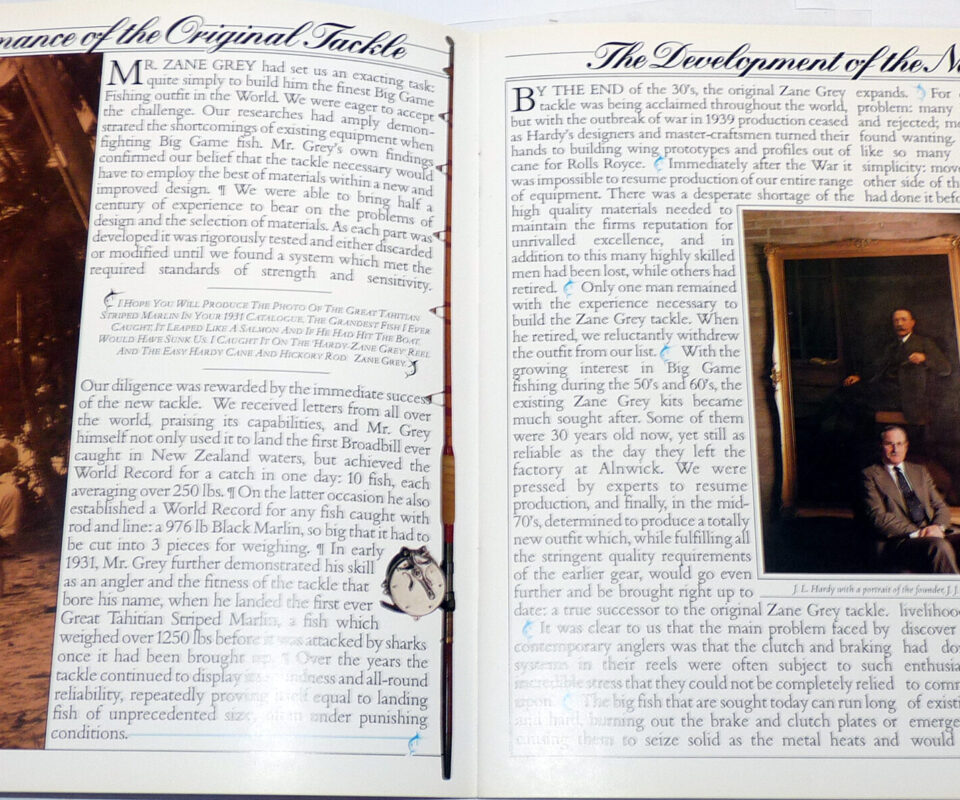 mance of the Original Tackle
MR. ZANE GREY had set us an exacting task:
quite simply to build him the finest Big Game
Fishing outfit in the World. We were eager to accept
the challenge. Our researches had amply demon-
strated the shortcomings of existing equipment when
fighting Big Game fish. Mr. Grey's own findings
confirmed our belief that the tackle necessary would
have to employ the best of materials within a new and
improved design. ¶ We were able to bring half a
century of experience to bear on the problems of
design and the selection of materials. As each part was
developed it was rigorously tested and either discarded
or modified until we found a system which met the
required standards of strength and sensitivity.
I HOPE YOU WILL PRODUCE THE PHOTO OF THE GREAT TAHITIAN
STRIPED MARLIN IN YOUR 1931 CATALOGUE. THE GRANDEST FISH I EVER
CAUGHT. IT LEAPED LIKE A SALMON AND IF HE HAD HIT THE BOAT,
WOULD HAVE SUNK US. I CAUGHT IT ON THE 'HARDY-ZANE GREY' REEL
AND THE EASY HARDY CANE AND HICKORY ROD. ZANE GREY.
Our diligence was rewarded by the immediate success
of the new tackle. We received letters from all over
the world, praising its capabilities, and Mr. Grey
himself not only used it to land the first Broadbill ever
caught in New Zealand waters, but achieved the
World Record for a catch in one day: 10 fish, each
averaging over 250 lbs. ¶ On the latter occasion he also
established a World Record for any fish caught with
rod and line: a 976 lb Black Marlin, so big that it had to
be cut into 3 pieces for weighing. ¶ In early
1931, Mr. Grey further demonstrated his skill
as an angler and the fitness of the tackle that
bore his name, when he landed the first ever
Great Tahitian Striped Marlin, a fish which
weighed over 1250 lbs before it was attacked by sharks
once it had been brought up. ¶ Over the years the
tackle continued to display its soundness and all-round
reliability, repeatedly proving itself equal to landing
fish of unprecedented size, often under punishing
conditions.
The Development of the N
BY THE END of the 30's, the original Zane Grey
tackle was being acclaimed throughout the world,
but with the outbreak of war in 1939 production ceased
as Hardy's designers and master-craftsmen turned their
hands to building wing prototypes and profiles out of
cane for Rolls Royce. Immediately after the War it
was impossible to resume production of our entire range
of equipment. There was a desperate shortage of the
high quality materials needed to
maintain the firms reputation for
unrivalled excellence, and in
addition to this many highly skilled
men had been lost, while others had
retired. Only one man remained
with the experience necessary to
build the Zane Grey tackle. When
he retired, we reluctantly withdrew
the outfit from our list. With the
growing interest in Big Game
fishing during the 50's and 60's, the
existing Zane Grey kits became
much sought after. Some of them
were 30 years old now, yet still as
reliable as the day they left the
factory at Alnwick. We were
pressed by experts to resume
production, and finally, in the mid-
70's, determined to produce a totally
new outfit which, while fulfilling all
the stringent quality requirements
of the earlier gear, would go even
further and be brought right up to
date: a true successor to the original Zane Grey tackle.
It was clear to us that the main problem faced by
contemporary anglers was that the clutch and braking
systems in their reels were often subject to such
incredible stress that they could not be completely relied
upon. The big fish that are sought today can run long
and hard, burning out the brake and clutch plates or
causing them to seize solid as the metal heats and
expands. For
problem: many
and rejected; m
found wanting,
like so many
simplicity: mov
other side of th
had done it befo
J. L. Hardy with a portrait of the founder, J. J.
livelihoo
discover
had do
enthusia
to com
of existi
emerge
would